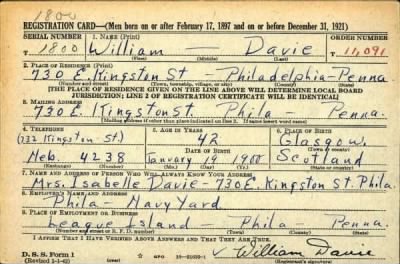 1800
REGISTRATION CARD—(Men born on or after February 17, 1897 and on or before December 31, 1921)
SERIAL NUMBER 1. NAME (Print) ORDER NUMBER
T 1800 William — Davie T 11,091
(First) (Middle) (Last)
2. PLACE OF RESIDENCE (Print)
730 E. Kingston St. Philadelphia - Penna
(Number and street) (Town, township, village, or city) (County) (State)
[THE PLACE OF RESIDENCE GIVEN ON THE LINE ABOVE WILL DETERMINE LOCAL BOARD
JURISDICTION; LINE 2 OF REGISTRATION CERTIFICATE WILL BE IDENTICAL]
3. MAILING ADDRESS
730 E. Kingston St. Phila Penna.
[Mailing address if other than place indicated on line 2. If same insert word same]
4. TELEPHONE 5. AGE IN YEARS 6. PLACE OF BIRTH
(732 Kingston St) 42 Glasgow
DATE OF BIRTH (Town or county)
Neb. 4238 January 19 1900 Scotland
(Exchange) (Number) (Mo.) (Day) (Yr.) (State or country)
7. NAME AND ADDRESS OF PERSON WHO WILL ALWAYS KNOW YOUR ADDRESS
Mrs. Isabelle Davie - 730 E. Kingston St. Phila.
8. EMPLOYER'S NAME AND ADDRESS
Phila - Navy Yard
9. PLACE OF EMPLOYMENT OR BUSINESS
League Island — Phila - Penna.
(Number and street or R. F. D. number) (Town) (County) (State)
I AFFIRM THAT I HAVE VERIFIED ABOVE ANSWERS AND THAT THEY ARE TRUE.
D. S. S. Form 1 GPO William Davie
(Revised 1-1-42) (Registrant's signature)